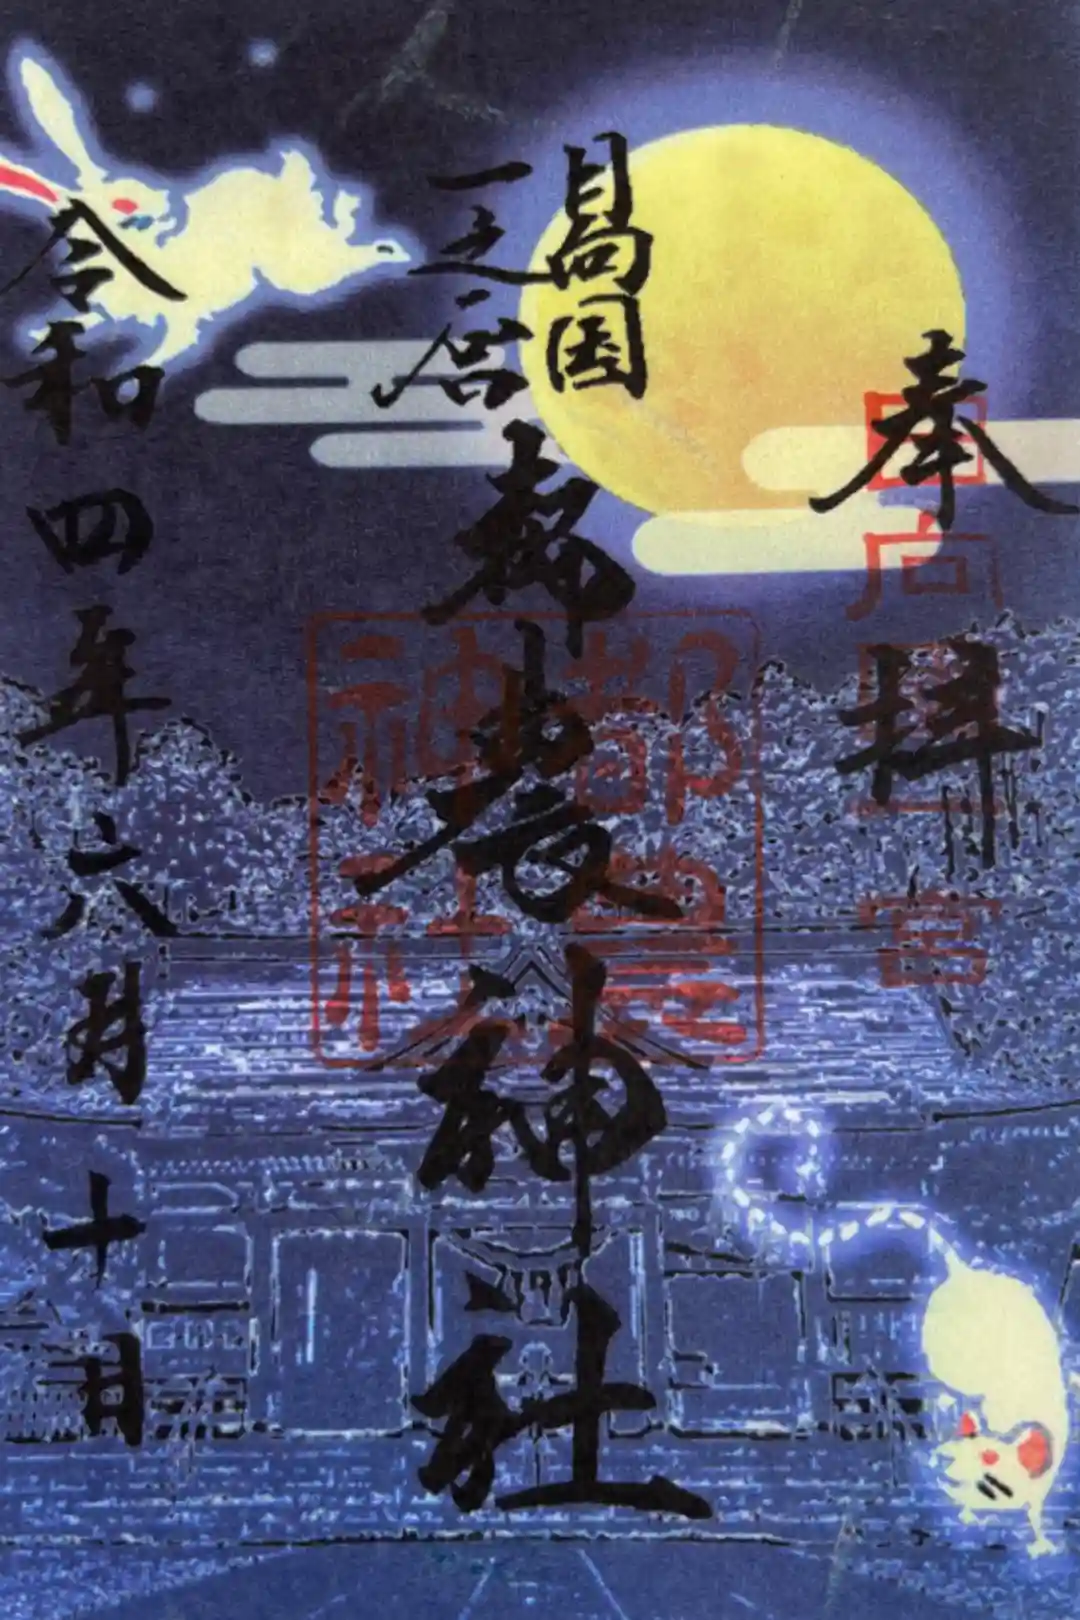 奉拝
日向国一宮
日向国
一之宮
都農神社
都農神社
令和四年六月十日